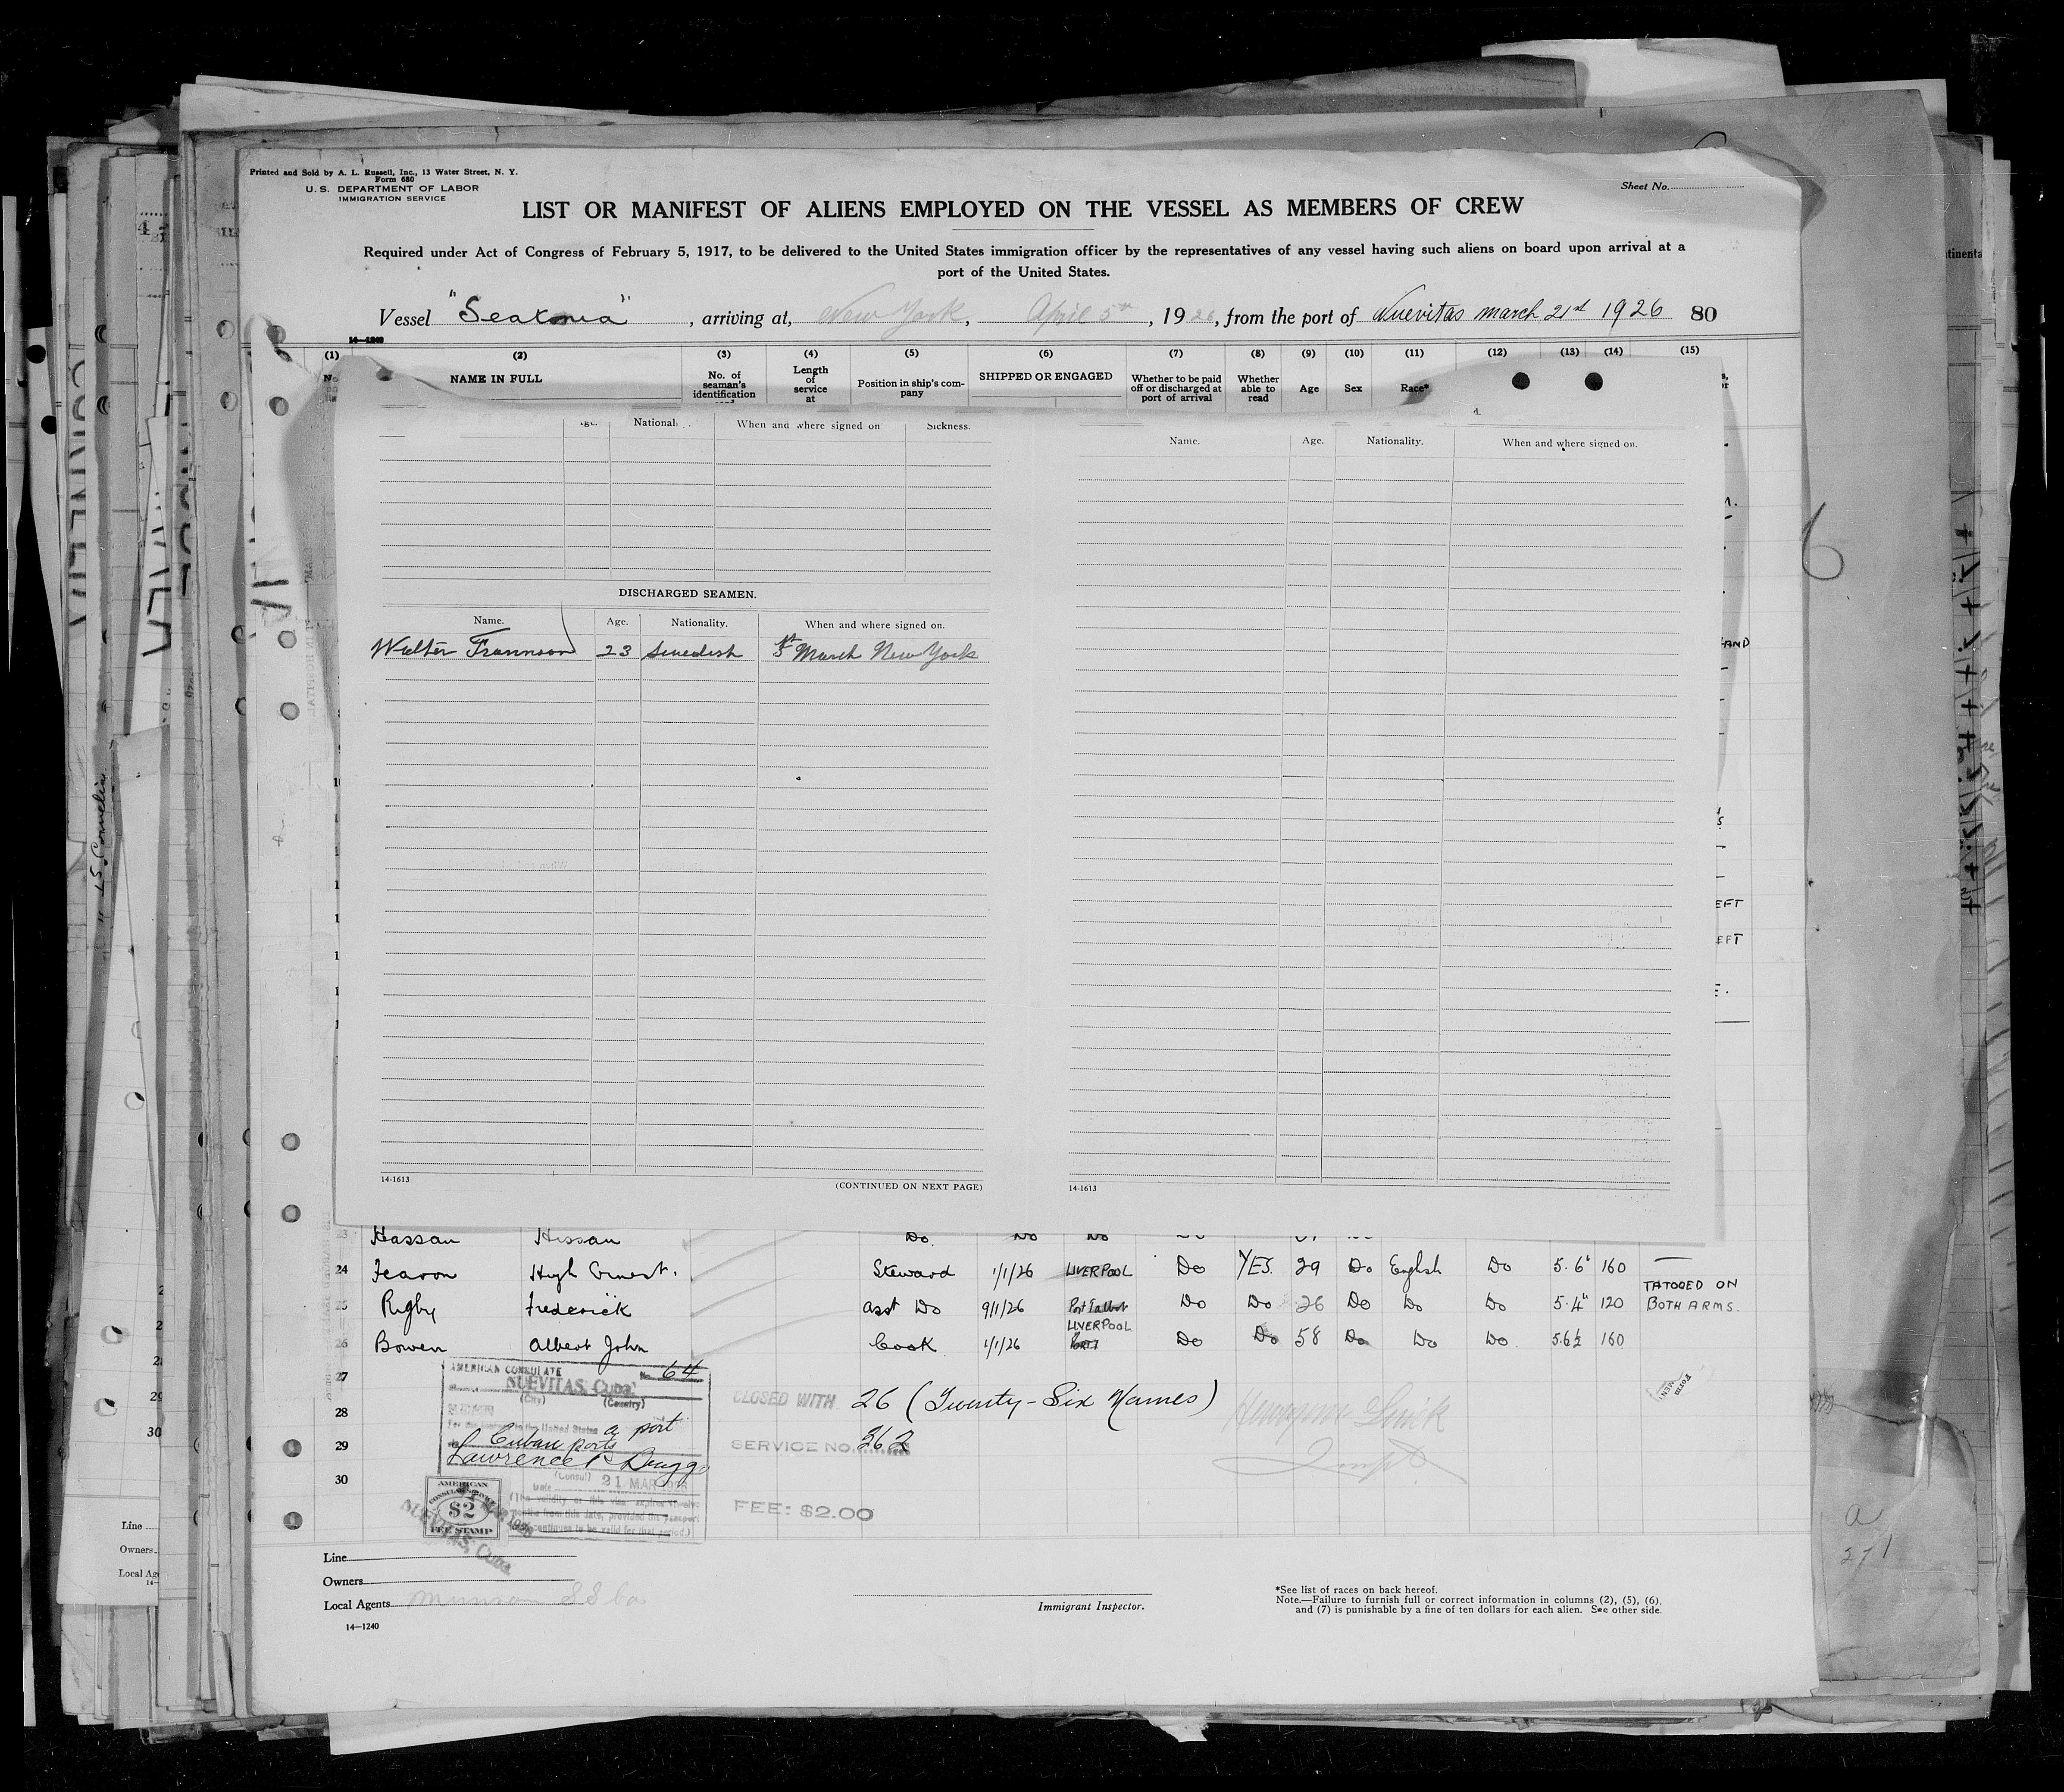 Printed and Sold by A. L. Russell, Inc., 13 Water Street, N. Y.
Form 680
U. S. DEPARTMENT OF LABOR
IMMIGRATION SERVICE
Sheet No.
LIST OR MANIFEST OF ALIENS EMPLOYED ON THE VESSEL AS MEMBERS OF CREW
Required under Act of Congress of February 5, 1917, to be delivered to the United States immigration officer by the representatives of any vessel having such aliens on board upon arrival at a
port of the United States.
Vessel "Seatonia", arriving at, New York, April 5th, 1926, from the port of Nuevitas march 21st 1926 80
14—1240
(1) (2) (3) (4) (5) (6) (7) (8) (9) (10) (11) (12) (13) (14) (15)
NAME IN FULL
No. of seaman's identification
Length of service at
Position in ship's company
SHIPPED OR ENGAGED
Whether to be paid off or discharged at port of arrival
Whether able to read
Age
Sex
Race*
Age. When and where signed on Sickness.
Name. Age. Nationality. When and where signed on.
DISCHARGED SEAMEN.
Name. Age. Nationality. When and where signed on.
Walter 23 Swedish March New York
14-1613
(CONTINUED ON NEXT PAGE)
14-1613
Hassan Hissan Do. Do Do
24 Fearon Hugh Ernest. Steward 1/1/26 LIVERPOOL Do YES. 29 Do English Do 5.6" 160 —
25 Rigby Frederick asst Do 9/1/26 Port Talbot Do Do 26 Do Do Do 5.4" 120 TATOOED ON BOTH ARMS.
26 Bowen Albert John Cook 1/1/26 LIVERPOOL Do Do 58 Do Do Do 5.6½ 160
27
28
29
30
AMERICAN CONSULATE No. 64
NUEVITAS, Cuba.
(City) (Country)
For the United States a port
Cuban ports
Lawrence P. Briggs
(Consul)
Date 21 MAR 1926
(The validity of this visa expires twelve
months from this date, provided the passport
continues to be valid for that period.)
AMERICAN
CONSULAR SERVICE
$2
FEE STAMP
NUEVITAS, Cuba
CLOSED WITH 26 (Twenty-Six Names)
SERVICE NO. 362
FEE: $2.00
Line
Owners
Local Agents Munson SS Co
14—1240
Immigrant Inspector.
*See list of races on back hereof.
Note.—Failure to furnish full or correct information in columns (2), (5), (6),
and (7) is punishable by a fine of ten dollars for each alien. See other side.
6
a
271